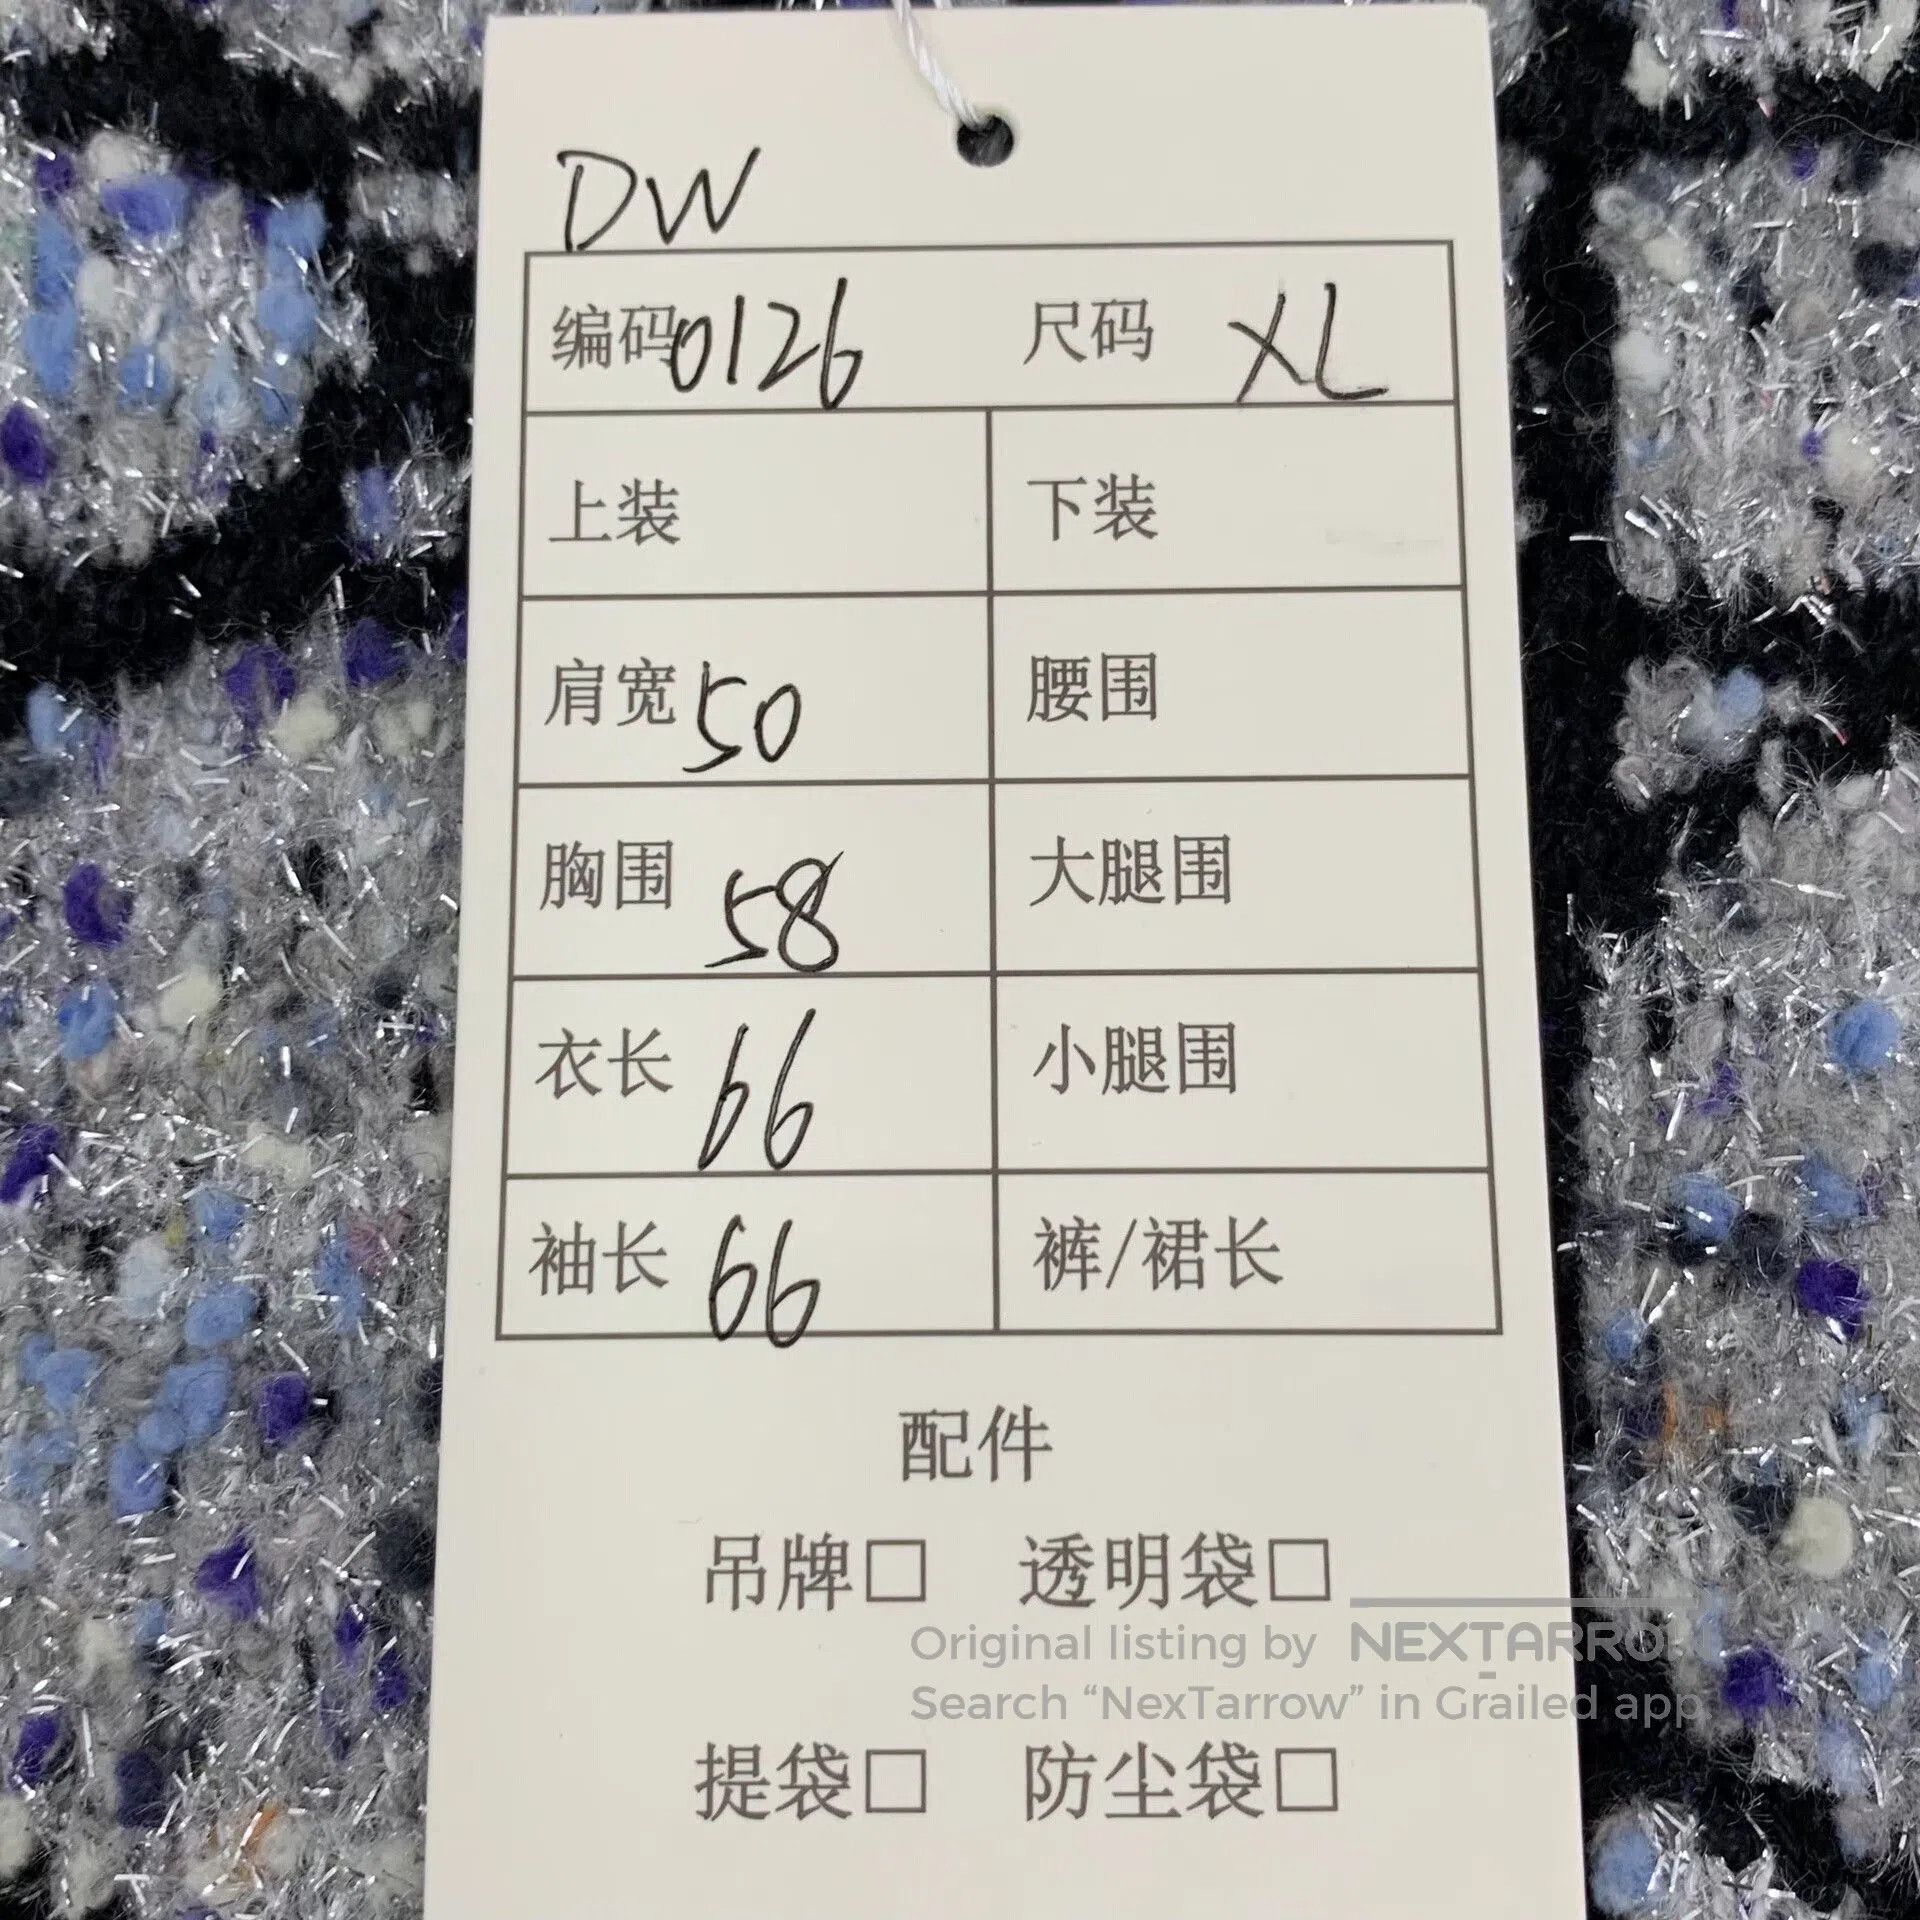 DW
编码0126 尺码 XL
上装 下装
肩宽 50 腰围
胸围 58 大腿围
衣长 66 小腿围
袖长 66 裤/裙长
配件
吊牌□ 透明袋□
Original listing by NEXTARROW
Search “NexTarrow” in Grailed app.
提袋□ 防尘袋□